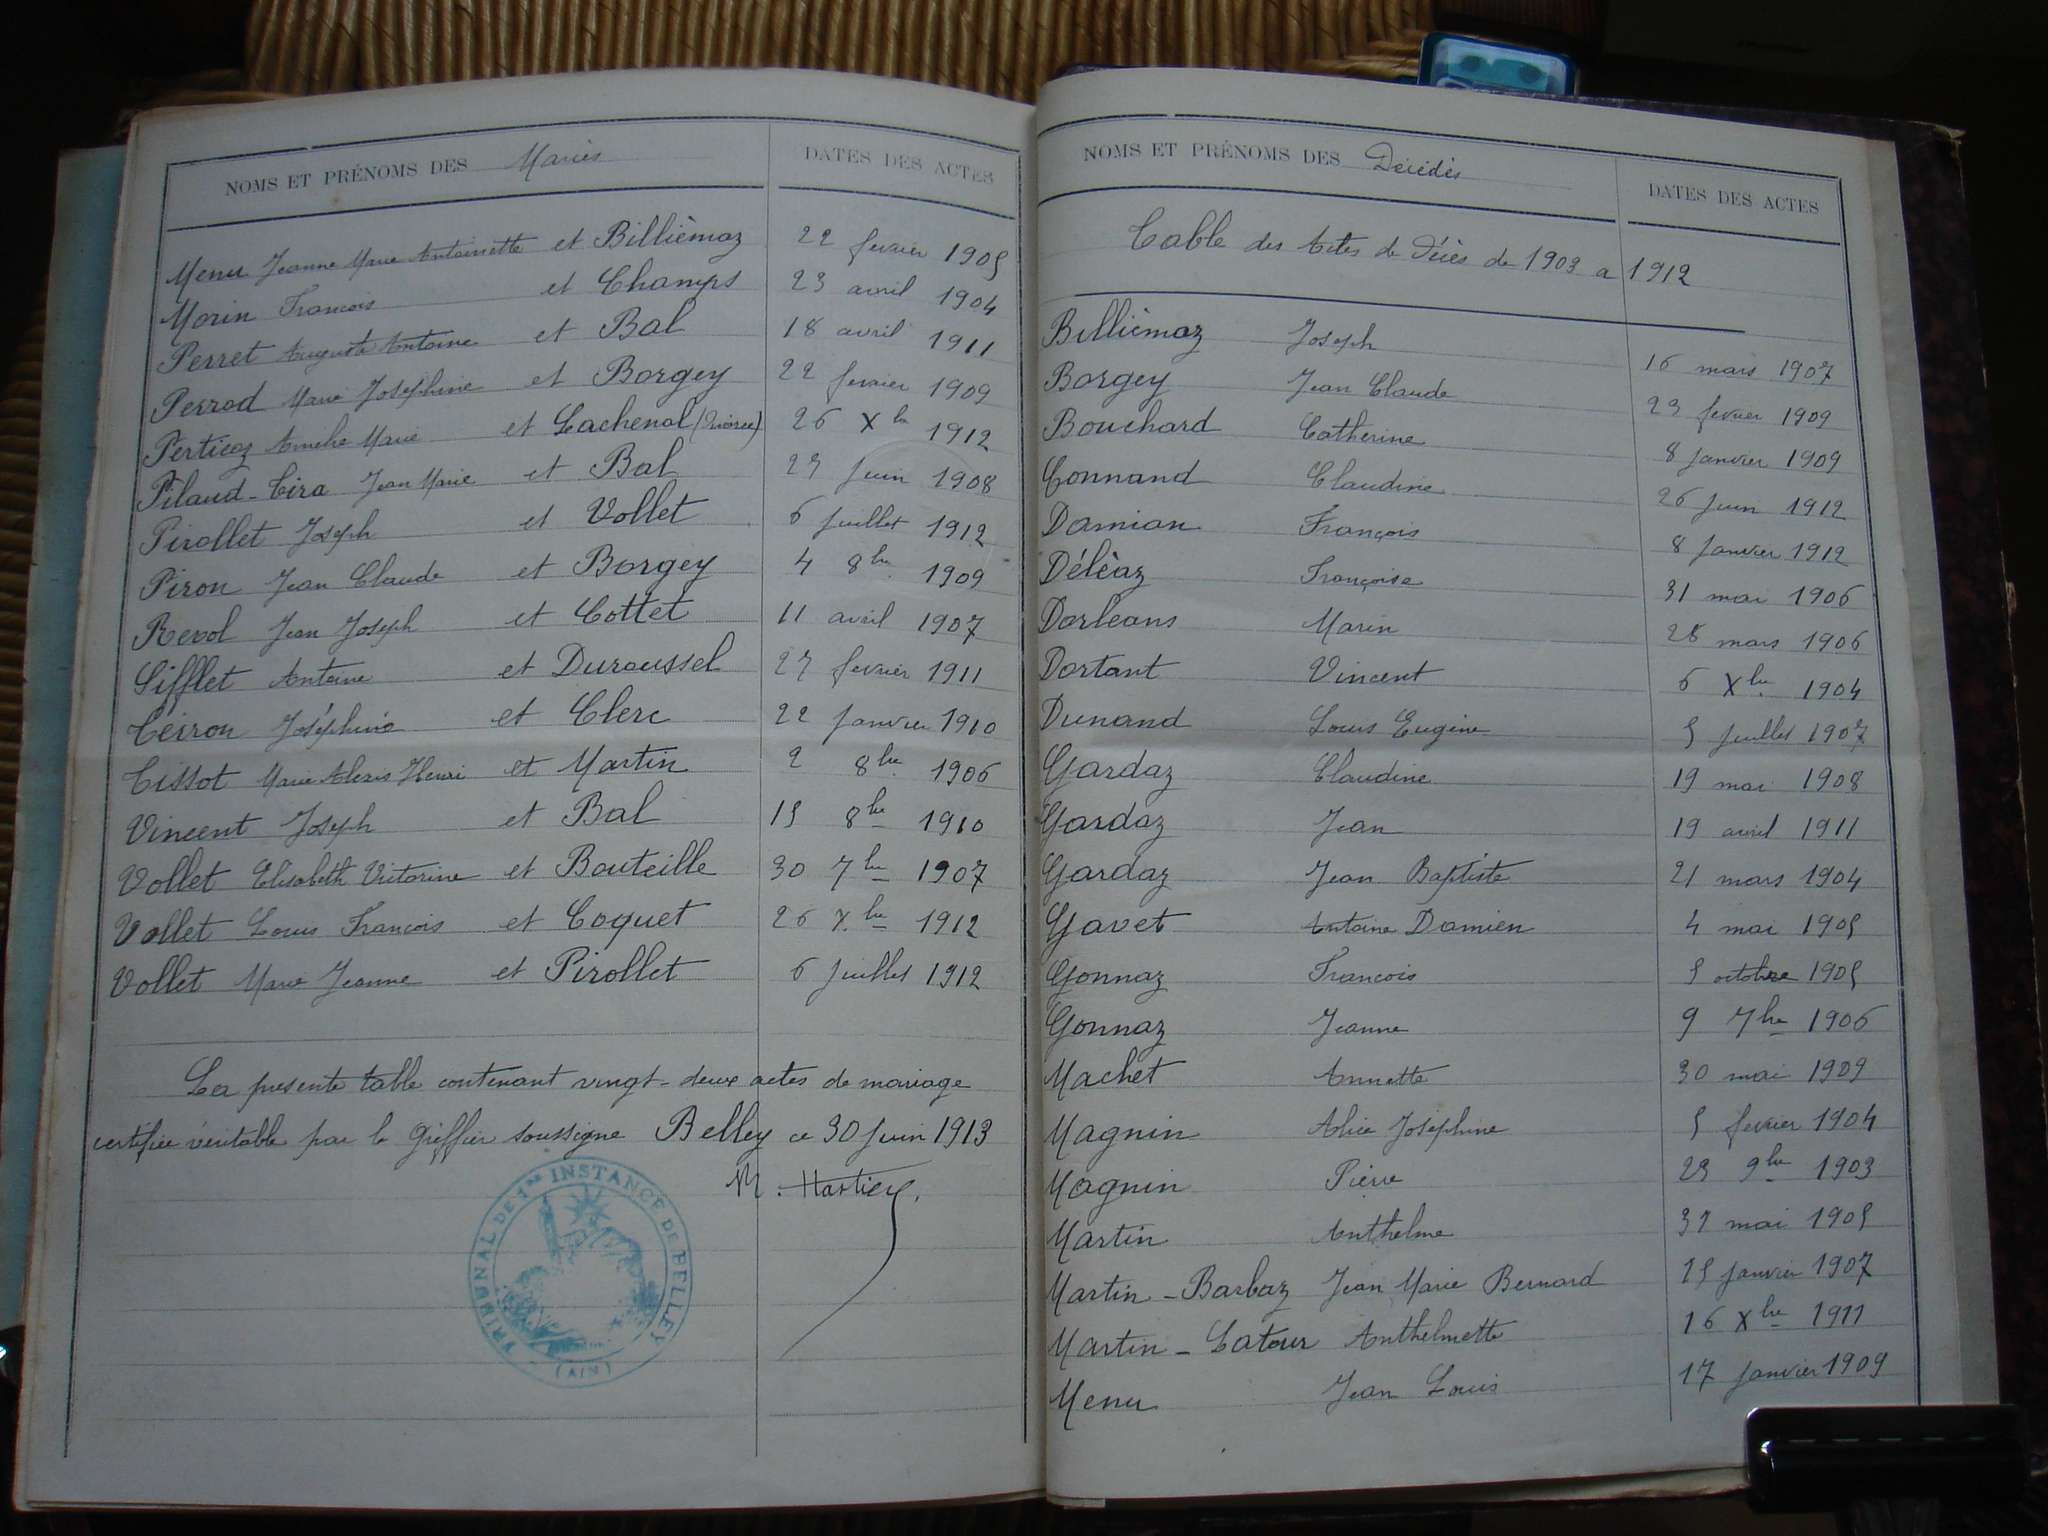 NOMS ET PRÉNOMS DES Mariés DATES DES ACTES
Menu Jeanne Marie Antoinette et Billièmaz 22 fevrier 1905
Morin Francois et Champs 23 avril 1904
Perret Auguste Antoine et Bal 18 avril 1911
Perrod Marie Joséphine et Borgey 22 fevrier 1909
Perticoz Amélie Marie et Lachenal (Divorce) 26 Xbre 1912
Pilaud-Tira Jean Marie et Bal 27 Juin 1908
Pirollet Joseph et Vollet 6 Juillet 1912
Piron Jean Claude et Borgey 4 8bre 1909
Revol Jean Joseph et Cottet 11 avril 1907
Sifflet Antoine et Duraussel 27 fevrier 1911
Teiron Joséphine et Clerc 22 Janvier 1910
Tissot Marie Alexis Henri et Martin 2 8bre 1906
Vincent Joseph et Bal 15 8bre 1910
Vollet Elisabeth Victorine et Bouteille 30 7bre 1907
Vollet Louis Francois et Coquet 26 Xbre 1912
Vollet Marie Jeanne et Pirollet 6 Juillet 1912
La presente table contenant vingt-deux actes de mariage
certifiée véritable par le Greffier soussigné Belley ce 30 Juin 1913
TRIBUNAL DE 1re INSTANCE DE BELLEY
(AIN)
NOMS ET PRÉNOMS DES Décédés DATES DES ACTES
Table des Actes de Décès de 1903 a 1912
Billièmaz Joseph 16 mars 1907
Borgey Jean Claude 23 fevrier 1909
Bouchard Catherine 8 Janvier 1909
Connand Claudine 26 Juin 1912
Damian François 8 Janvier 1912
Déléaz Françoise 31 mai 1906
Dorleans Marin 28 mars 1906
Dortant Vincent 6 Xbre 1904
Dunand Louis Eugène 5 Juillet 1907
Gardaz Claudine 19 mai 1908
Gardaz Jean 19 avril 1911
Gardaz Jean Baptiste 21 mars 1904
Gavet Antoine Damien 4 mai 1905
Gonnaz Francois 5 octobre 1905
Gonnaz Jeanne 9 7bre 1906
Machet Annette 30 mai 1909
Magnin Alice Joséphine 5 fevrier 1904
Magnin Pierre 23 9bre 1903
Martin Anthelme 31 mai 1905
Martin-Barbaz Jean Marie Bernard 15 Janvier 1907
Martin-Latour Anthelmette 16 Xbre 1911
Menu Jean Louis 17 Janvier 1909